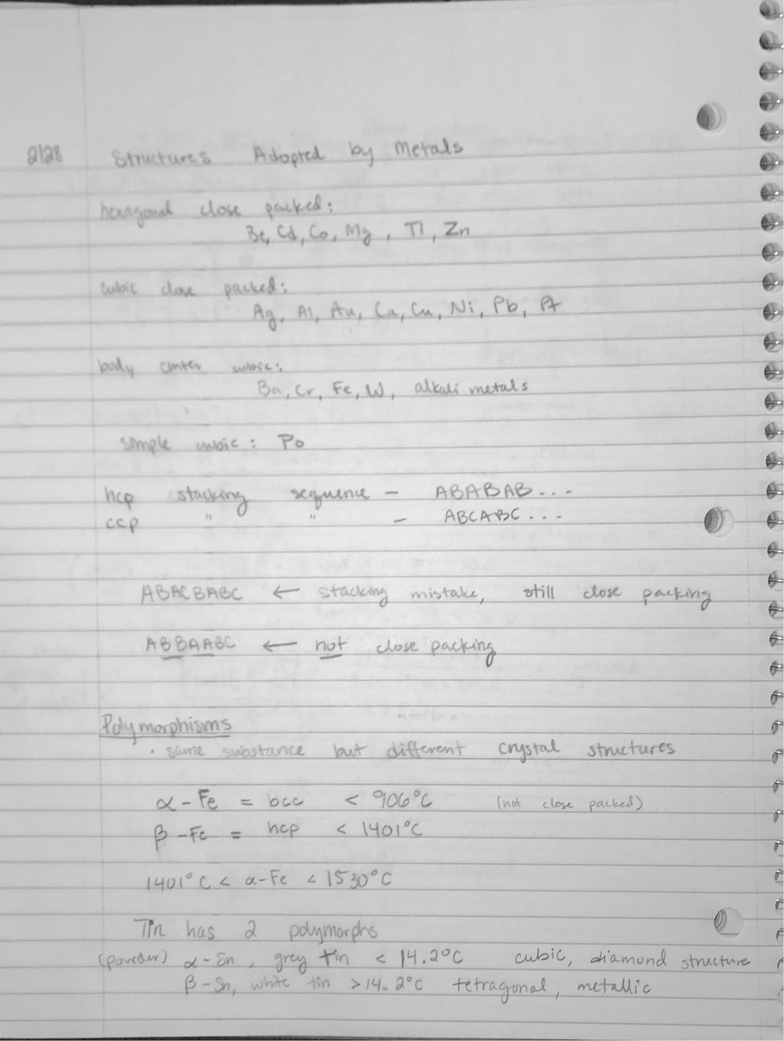 2/28 Structures Adopted by Metals
hexagonal close packed:
Be, Cd, Co, Mg, Tl, Zn
cubic close packed:
Ag, Al, Au, Ca, Cu, Ni, Pb, Pt
body center cubic:
Ba, Cr, Fe, W, alkali metals
simple cubic: Po
hcp stacking sequence - ABABAB...
ccp " " - ABCABC...
ABACBABC ← stacking mistake, still close packing
ABBAABC ← not close packing
Polymorphisms
· same substance but different crystal structures
α-Fe = bcc < 906°C (not close packed)
β-Fe = hcp < 1401°C
1401°C < α-Fe < 1530°C
Tin has 2 polymorphs
(powder) α-Sn, grey tin < 14.2°C cubic, diamond structure
β-Sn, white tin > 14.2°C tetragonal, metallic